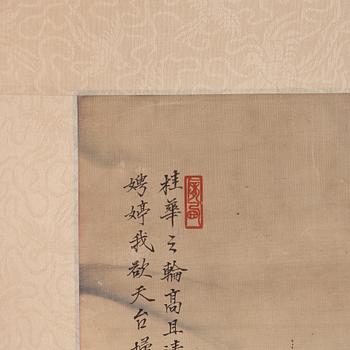 桂華之輪高且清
娉婷我欲天台